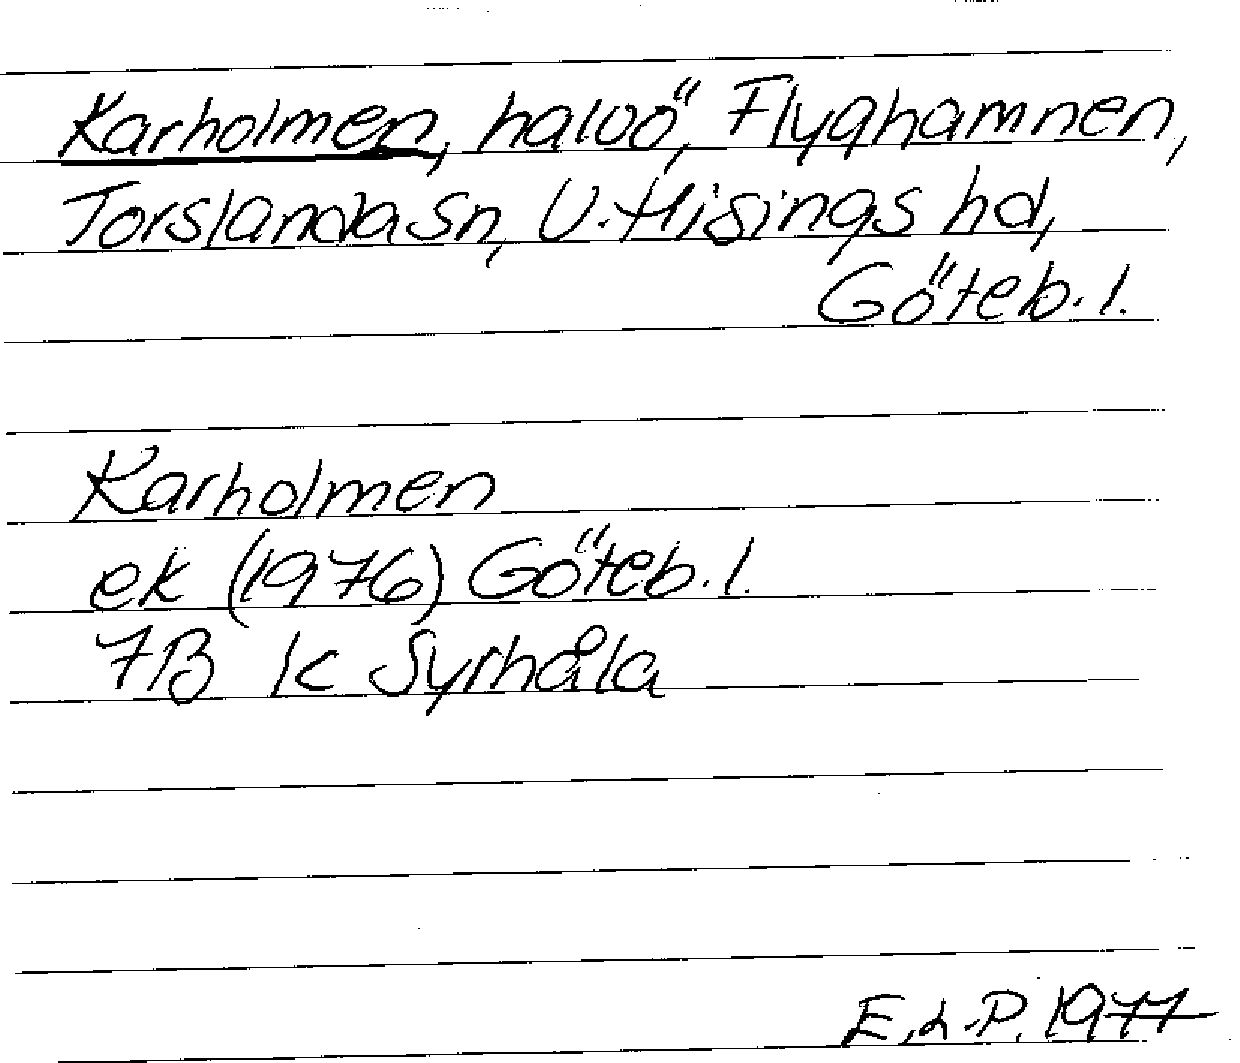 Karholmen, halvö, Flyghamnen,
Torslanda sn, V. Hisings hd,
Göteb. l.
Karholmen
ek (1976) Göteb. l.
7B 1c Syrhåla
E. L. P. 1977